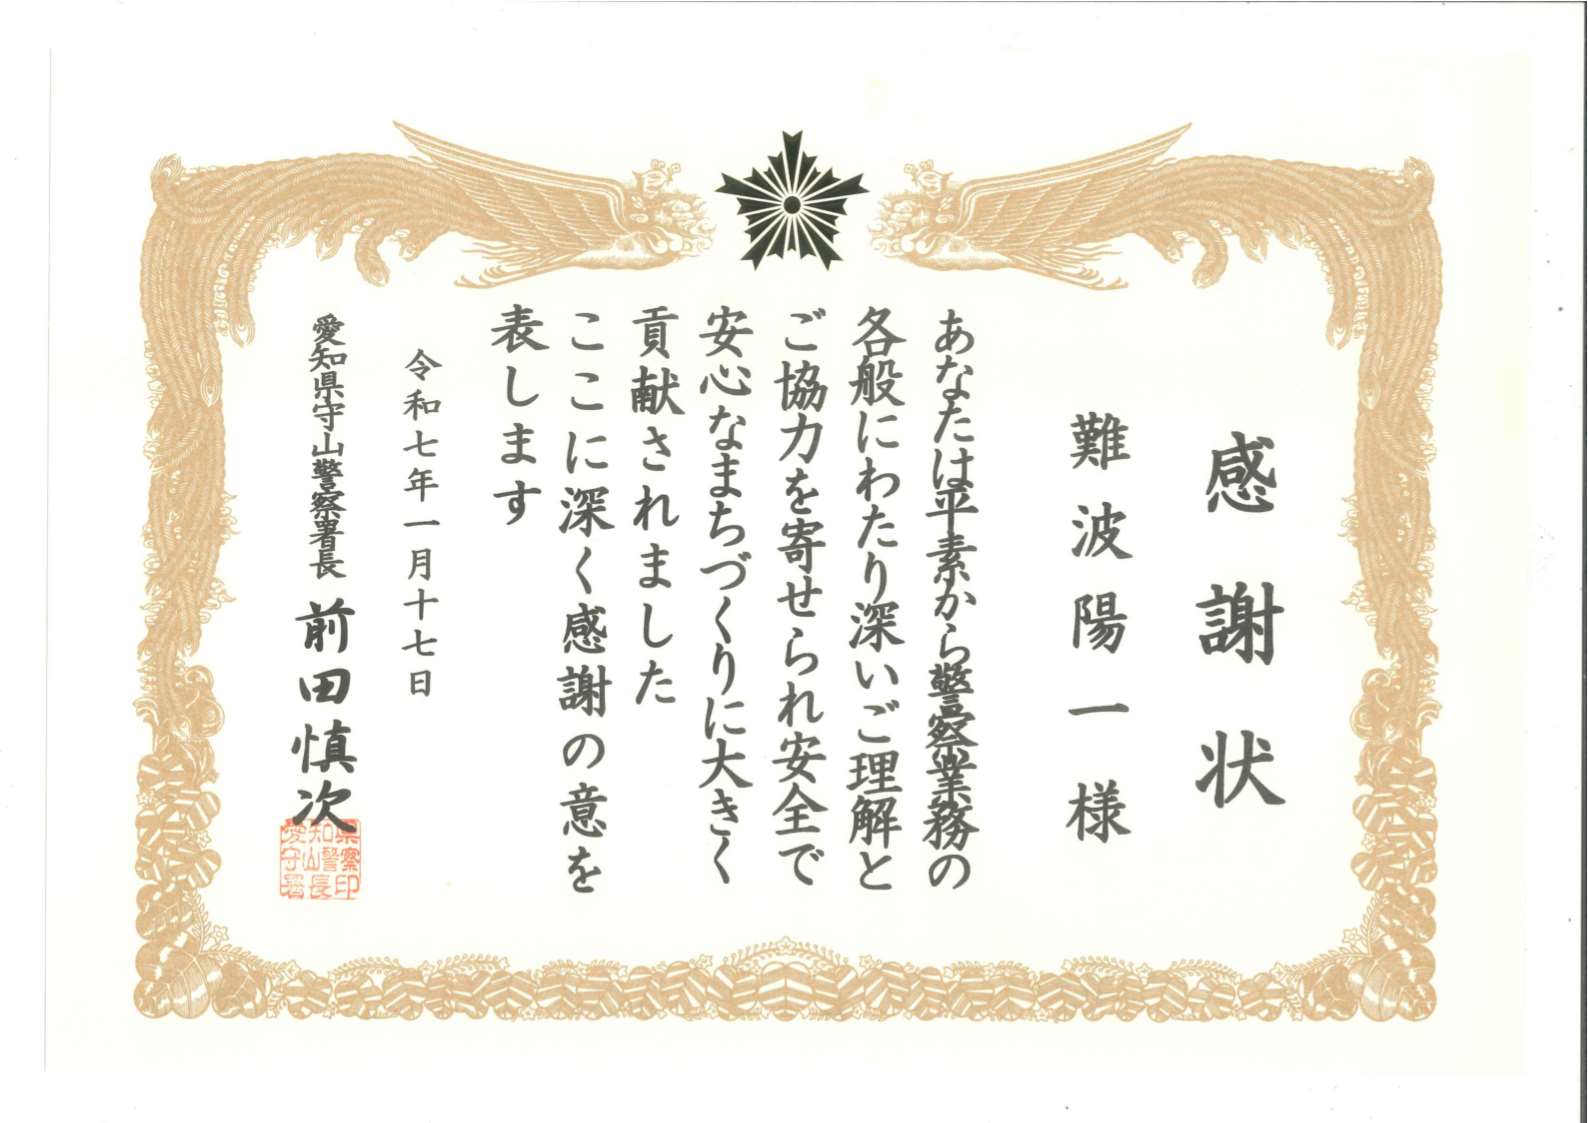 感謝状
難波陽一様
あなたは平素から警察業務の
各般にわたり深いご理解と
ご協力を寄せられ安全で
安心なまちづくりに大きく
貢献されました
ここに深く感謝の意を
表します
令和七年一月十七日
愛知県守山警察署長 前田慎次
県察印
知警長
愛守山署